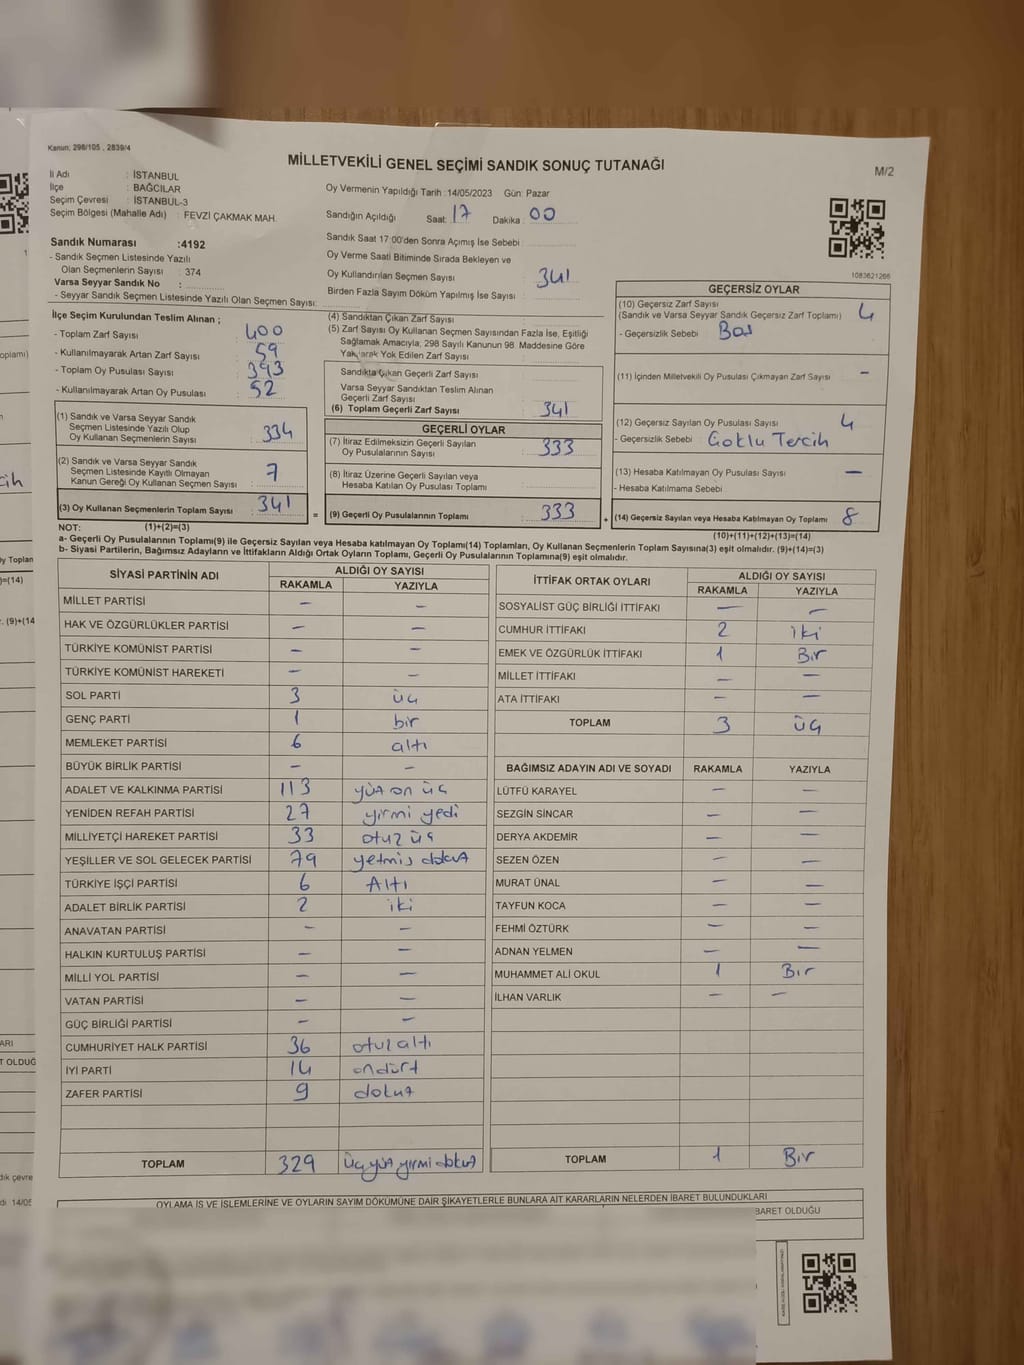 Kanun; 298/105 , 2839/4
MİLLETVEKİLİ GENEL SEÇİMİ SANDIK SONUÇ TUTANAĞI
M/2
İl Adı : İSTANBUL
İlçe : BAĞCILAR
Seçim Çevresi : İSTANBUL-3
Seçim Bölgesi (Mahalle Adı) : FEVZİ ÇAKMAK MAH.
Sandık Numarası :4192
- Sandık Seçmen Listesinde Yazılı
Olan Seçmenlerin Sayısı : 374
Varsa Seyyar Sandık No :
- Seyyar Sandık Seçmen Listesinde Yazılı Olan Seçmen Sayısı:
Oy Vermenin Yapıldığı Tarih :14/05/2023 Gün: Pazar
Sandığın Açıldığı Saat: 17 Dakika : 00
Sandık Saat 17:00'den Sonra Açımış İse Sebebi :
Oy Verme Saati Bitiminde Sırada Bekleyen ve
Oy Kullandırılan Seçmen Sayısı : 341
Birden Fazla Sayım Döküm Yapılmış İse Sayısı :
1083621266
İlçe Seçim Kurulundan Teslim Alınan ;
- Toplam Zarf Sayısı : 400
- Kullanılmayarak Artan Zarf Sayısı : 59
- Toplam Oy Pusulası Sayısı : 393
- Kullanılmayarak Artan Oy Pusulası : 52
(1) Sandık ve Varsa Seyyar Sandık
Seçmen Listesinde Yazılı Olup
Oy Kullanan Seçmenlerin Sayısı : 334
(2) Sandık ve Varsa Seyyar Sandık
Seçmen Listesinde Kayıtlı Olmayan
Kanun Gereği Oy Kullanan Seçmen Sayısı : 7
(3) Oy Kullanan Seçmenlerin Toplam Sayısı : 341
(4) Sandıktan Çıkan Zarf Sayısı :
(5) Zarf Sayısı Oy Kullanan Seçmen Sayısından Fazla İse, Eşitliği
Sağlamak Amacıyla; 298 Sayılı Kanunun 98. Maddesine Göre
Yakılarak Yok Edilen Zarf Sayısı :
Sandıkta Çıkan Geçerli Zarf Sayısı :
Varsa Seyyar Sandıktan Teslim Alınan
Geçerli Zarf Sayısı :
(6) Toplam Geçerli Zarf Sayısı : 341
GEÇERLİ OYLAR
(7) İtiraz Edilmeksizin Geçerli Sayılan
Oy Pusulalarının Sayısı : 333
(8) İtiraz Üzerine Geçerli Sayılan veya
Hesaba Katılan Oy Pusulası Toplamı :
= (9) Geçerli Oy Pusulalarının Toplamı : 333
GEÇERSİZ OYLAR
(10) Geçersiz Zarf Sayısı
(Sandık ve Varsa Seyyar Sandık Geçersiz Zarf Toplamı) : 4
- Geçersizlik Sebebi : Boş
(11) İçinden Milletvekili Oy Pusulası Çıkmayan Zarf Sayısı : -
(12) Geçersiz Sayılan Oy Pusulası Sayısı : 4
- Geçersizlik Sebebi : Çoklu Tercih
(13) Hesaba Katılmayan Oy Pusulası Sayısı : -
- Hesaba Katılmama Sebebi :
+ (14) Geçersiz Sayılan veya Hesaba Katılmayan Oy Toplamı : 8
NOT: (1)+(2)=(3)
(10)+(11)+(12)+(13)=(14)
a- Geçerli Oy Pusulalarının Toplamı(9) ile Geçersiz Sayılan veya Hesaba katılmayan Oy Toplamı(14) Toplamları, Oy Kullanan Seçmenlerin Toplam Sayısına(3) eşit olmalıdır. (9)+(14)=(3)
b- Siyasi Partilerin, Bağımsız Adayların ve İttifakların Aldığı Ortak Oyların Toplamı, Geçerli Oy Pusulalarının Toplamına(9) eşit olmalıdır.
SİYASİ PARTİNİN ADI ALDIĞI OY SAYISI
RAKAMLA YAZIYLA
MİLLET PARTİSİ - -
HAK VE ÖZGÜRLÜKLER PARTİSİ - -
TÜRKİYE KOMÜNİST PARTİSİ - -
TÜRKİYE KOMÜNİST HAREKETİ - -
SOL PARTİ 3 üç
GENÇ PARTİ 1 bir
MEMLEKET PARTİSİ 6 altı
BÜYÜK BİRLİK PARTİSİ - -
ADALET VE KALKINMA PARTİSİ 113 yüz on üç
YENİDEN REFAH PARTİSİ 27 yirmi yedi
MİLLİYETÇİ HAREKET PARTİSİ 33 otuz üç
YEŞİLLER VE SOL GELECEK PARTİSİ 79 yetmiş dokuz
TÜRKİYE İŞÇİ PARTİSİ 6 Altı
ADALET BİRLİK PARTİSİ 2 iki
ANAVATAN PARTİSİ - -
HALKIN KURTULUŞ PARTİSİ - -
MİLLİ YOL PARTİSİ - -
VATAN PARTİSİ - -
GÜÇ BİRLİĞİ PARTİSİ - -
CUMHURİYET HALK PARTİSİ 36 otuz altı
İYİ PARTİ 14 ondört
ZAFER PARTİSİ 9 dokuz
TOPLAM 329 üçyüz yirmi dokuz
İTTİFAK ORTAK OYLARI ALDIĞI OY SAYISI
RAKAMLA YAZIYLA
SOSYALİST GÜÇ BİRLİĞİ İTTİFAKI - -
CUMHUR İTTİFAKI 2 iki
EMEK VE ÖZGÜRLÜK İTTİFAKI 1 Bir
MİLLET İTTİFAKI - -
ATA İTTİFAKI - -
TOPLAM 3 üç
BAĞIMSIZ ADAYIN ADI VE SOYADI RAKAMLA YAZIYLA
LÜTFÜ KARAYEL - -
SEZGİN SİNCAR - -
DERYA AKDEMİR - -
SEZEN ÖZEN - -
MURAT ÜNAL - -
TAYFUN KOCA - -
FEHMİ ÖZTÜRK - -
ADNAN YELMEN - -
MUHAMMET ALİ OKUL 1 Bir
İLHAN VARLIK - -
TOPLAM 1 Bir
OYLAMA İŞ VE İŞLEMLERİNE VE OYLARIN SAYIM DÖKÜMÜNE DAİR ŞİKAYETLERLE BUNLARA AİT KARARLARIN NELERDEN İBARET BULUNDUKLARI
BARET OLDUĞU